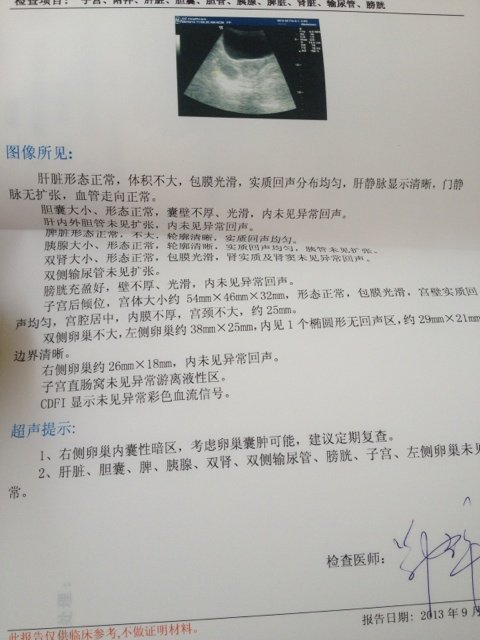 检查项目: 子宫、附件、肝脏、胆囊、胆管、胰腺、脾脏、肾脏、输尿管、膀胱
图像所见:
肝脏形态正常，体积不大，包膜光滑，实质回声分布均匀，肝静脉显示清晰，门静
脉无扩张，血管走向正常。
胆囊大小、形态正常，囊壁不厚、光滑，内未见异常回声。
肝内外胆管未见扩张，内未见异常回声。
脾脏形态正常，不大，轮廓清晰，实质回声均匀。
胰腺大小、形态正常，轮廓清晰，实质回声均匀，胰管未见扩张。
双肾大小、形态正常，包膜光滑，肾实质及肾窦未见异常回声。
双侧输尿管未见扩张。
膀胱充盈好，壁不厚、光滑，内未见异常回声。
子宫后倾位，宫体大小约 54mm×46mm×32mm，形态正常，包膜光滑，宫壁实质回
声均匀，宫腔居中，内膜不厚，宫颈不大，约 25mm。
双侧卵巢不大，左侧卵巢约 38mm×25mm，内见 1 个椭圆形无回声区，约 29mm×21mm
边界清晰。
右侧卵巢约 26mm×18mm，内未见异常回声。
子宫直肠窝未见异常游离液性区。
CDFI 显示未见异常彩色血流信号。
超声提示:
1、右侧卵巢内囊性暗区，考虑卵巢囊肿可能，建议定期复查。
2、肝脏、胆囊、脾、胰腺、双肾、双侧输尿管、膀胱、子宫、左侧卵巢未见
常。
检查医师:
报告日期: 2013 年 9 月
此报告仅供临床参考,不做证明材料。